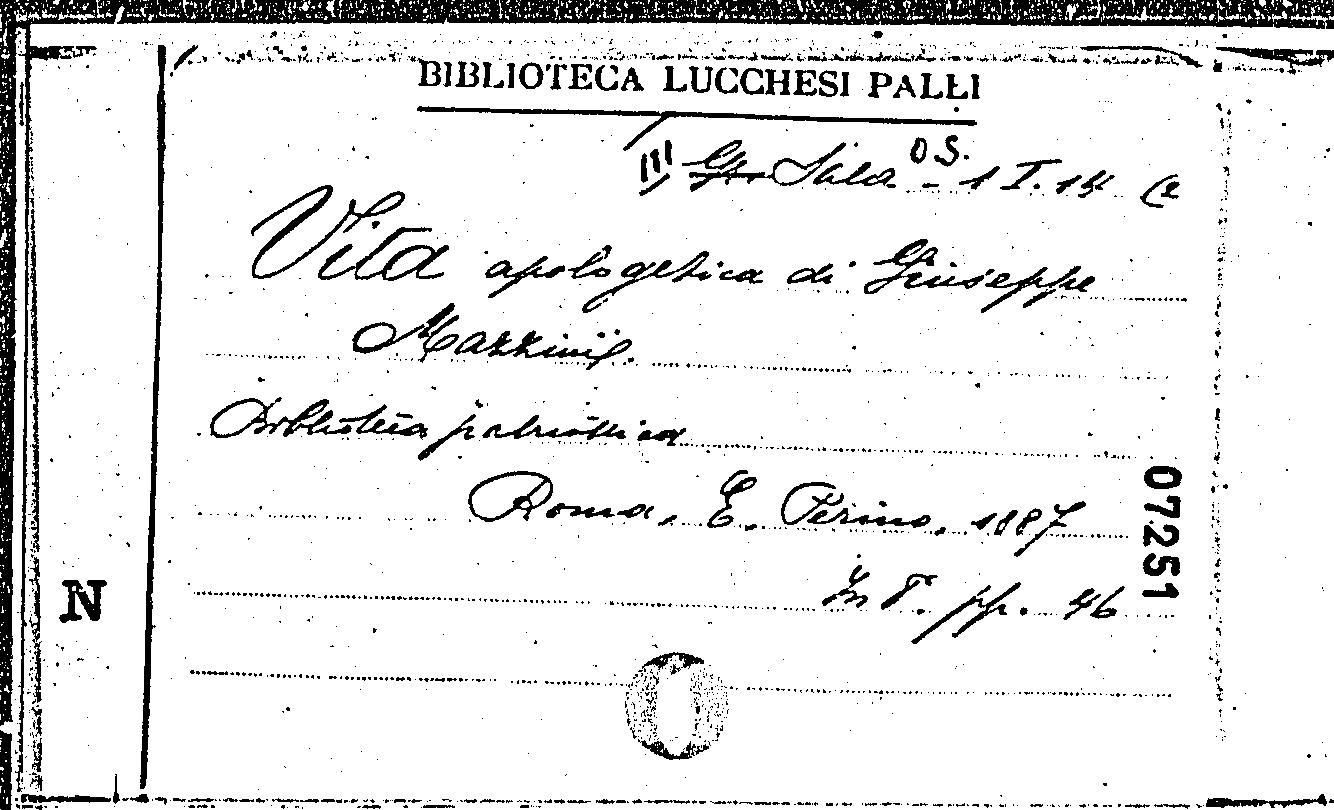 BIBLIOTECA LUCCHESI PALLI
III Gr. Sala O S. - 1 I. 14 (2
Vita apologetica di Giuseppe
Mazzini.
Biblioteca patriottica
Roma, E. Perino, 1887
In 8. pp. 46
07251
N